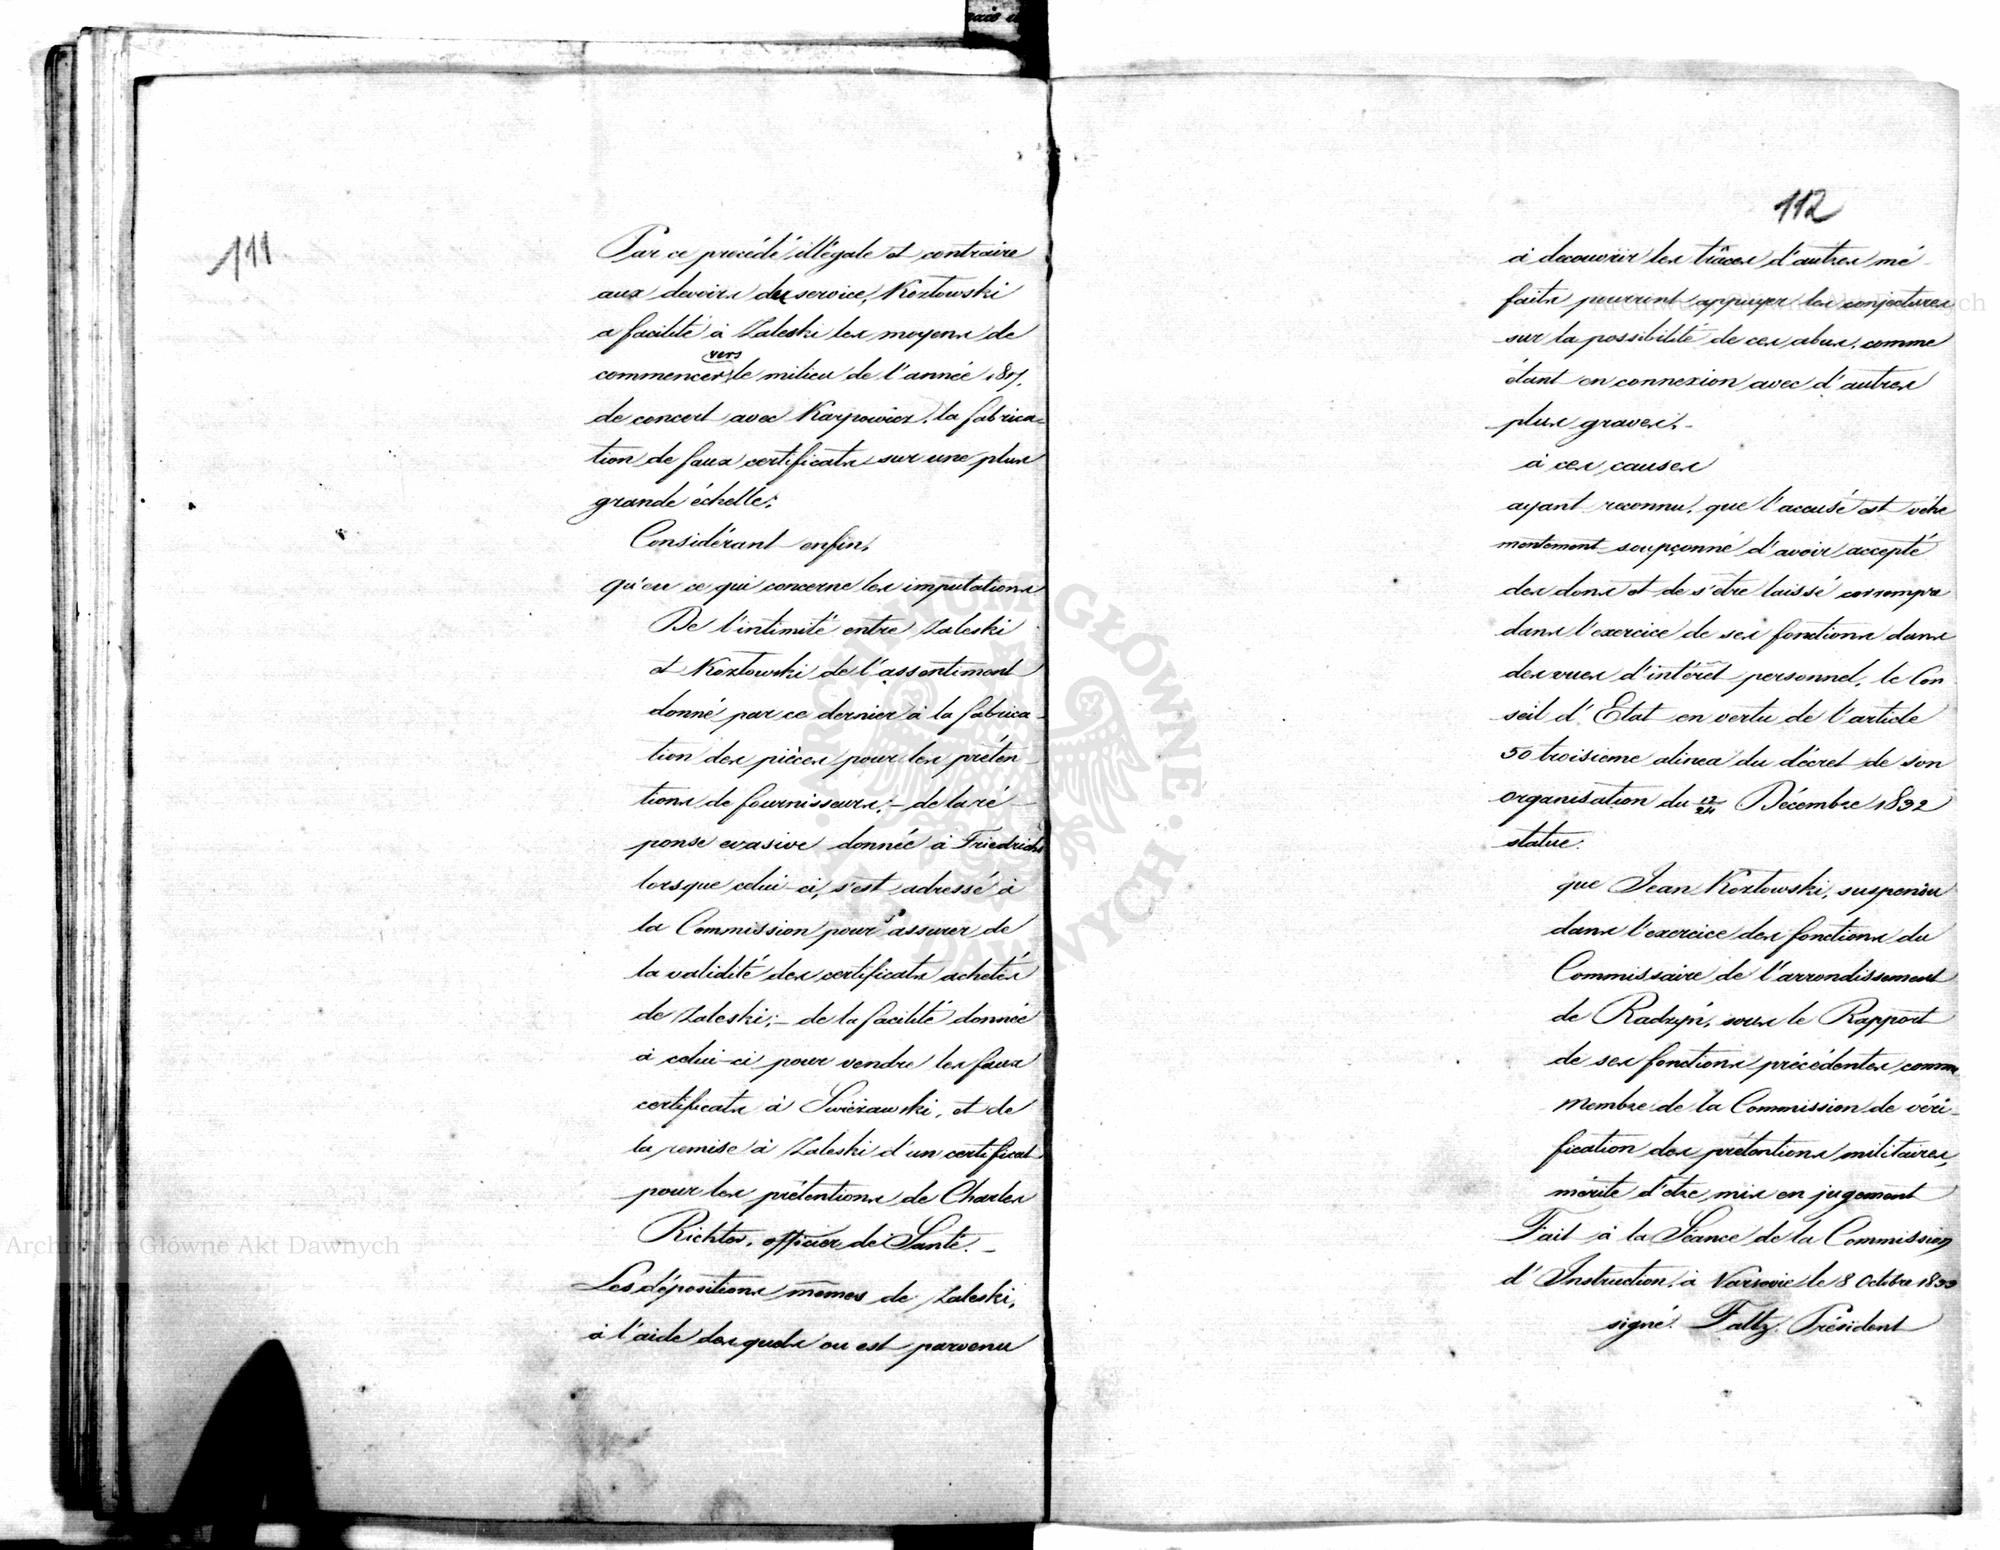 111
Par ce procédé illégale et contraire
aux devoirs du service, Kozłowski
a facilité à Zaleski les moyens de
vers
commencer le milieu de l'année
de concert avec Karpowicz, la fabrica-
tion de faux certificats sur une plus
grande échelle;
Considérant enfin,
qu'en ce qui concerne les imputations
De l'intimité entre Zaleski
et Kozłowski de l'assentiment
donné par ce dernier à la fabrica-
tion des pièces pour les préten-
tions de fournisseurs; - de la ré-
ponse evasive donnée à Friedrichs
lorsque celui-ci, s'est adressé à
la Commission pour s'assurer de
la validité des certificats achetés
de Zaleski; - de la facilité donnée
à celui-ci pour vendre les faux
certificats à Swieżawski, et de
la remise à Zaleski d'un certificat
pour les prétentions de Charles
Richter, officier de Santé. -
Les dépositions mêmes de Zaleski,
à l'aide desquels on est parvenu
112
à decouvrir les trâces d'autres mé-
faits pourront appuyer les conjectures
sur la possibilité de ces abus, comme
étant en connexion avec d'autres
plus graves. -
à ces causes
ayant reconnu, que l'accusé est véhé
mentement soupçonné d'avoir accepté
des dons et de s'etre laissé corrompre
dans l'exercice de ses fonctions dans
des vues d'intérêt personnel, le Con
seil d'Etat en vertu de l'article
50 troisieme alinea du décret de son
organisation du 12/24 Décembre 1832
statue.
que Jean Kozłowski, suspendu
dans l'exercice des fonctions du
Commissaire de l'arrondissement
de Radzyń, sous le Rapport
de ses fonctions précédentes comme
membre de la Commission de véri-
fication des prétentions militaires,
mérite d'etre mis en jugement
Fait à la Séance de la Commission
d'Instruction, à Varsovie le 8 Octobre 1833
signé. Faltz. Président
Archiwum Główne Akt Dawnych
Archiwum Główne Akt Dawnych
ARCHIWUM GŁÓWNE · AKT DAWNYCH ·